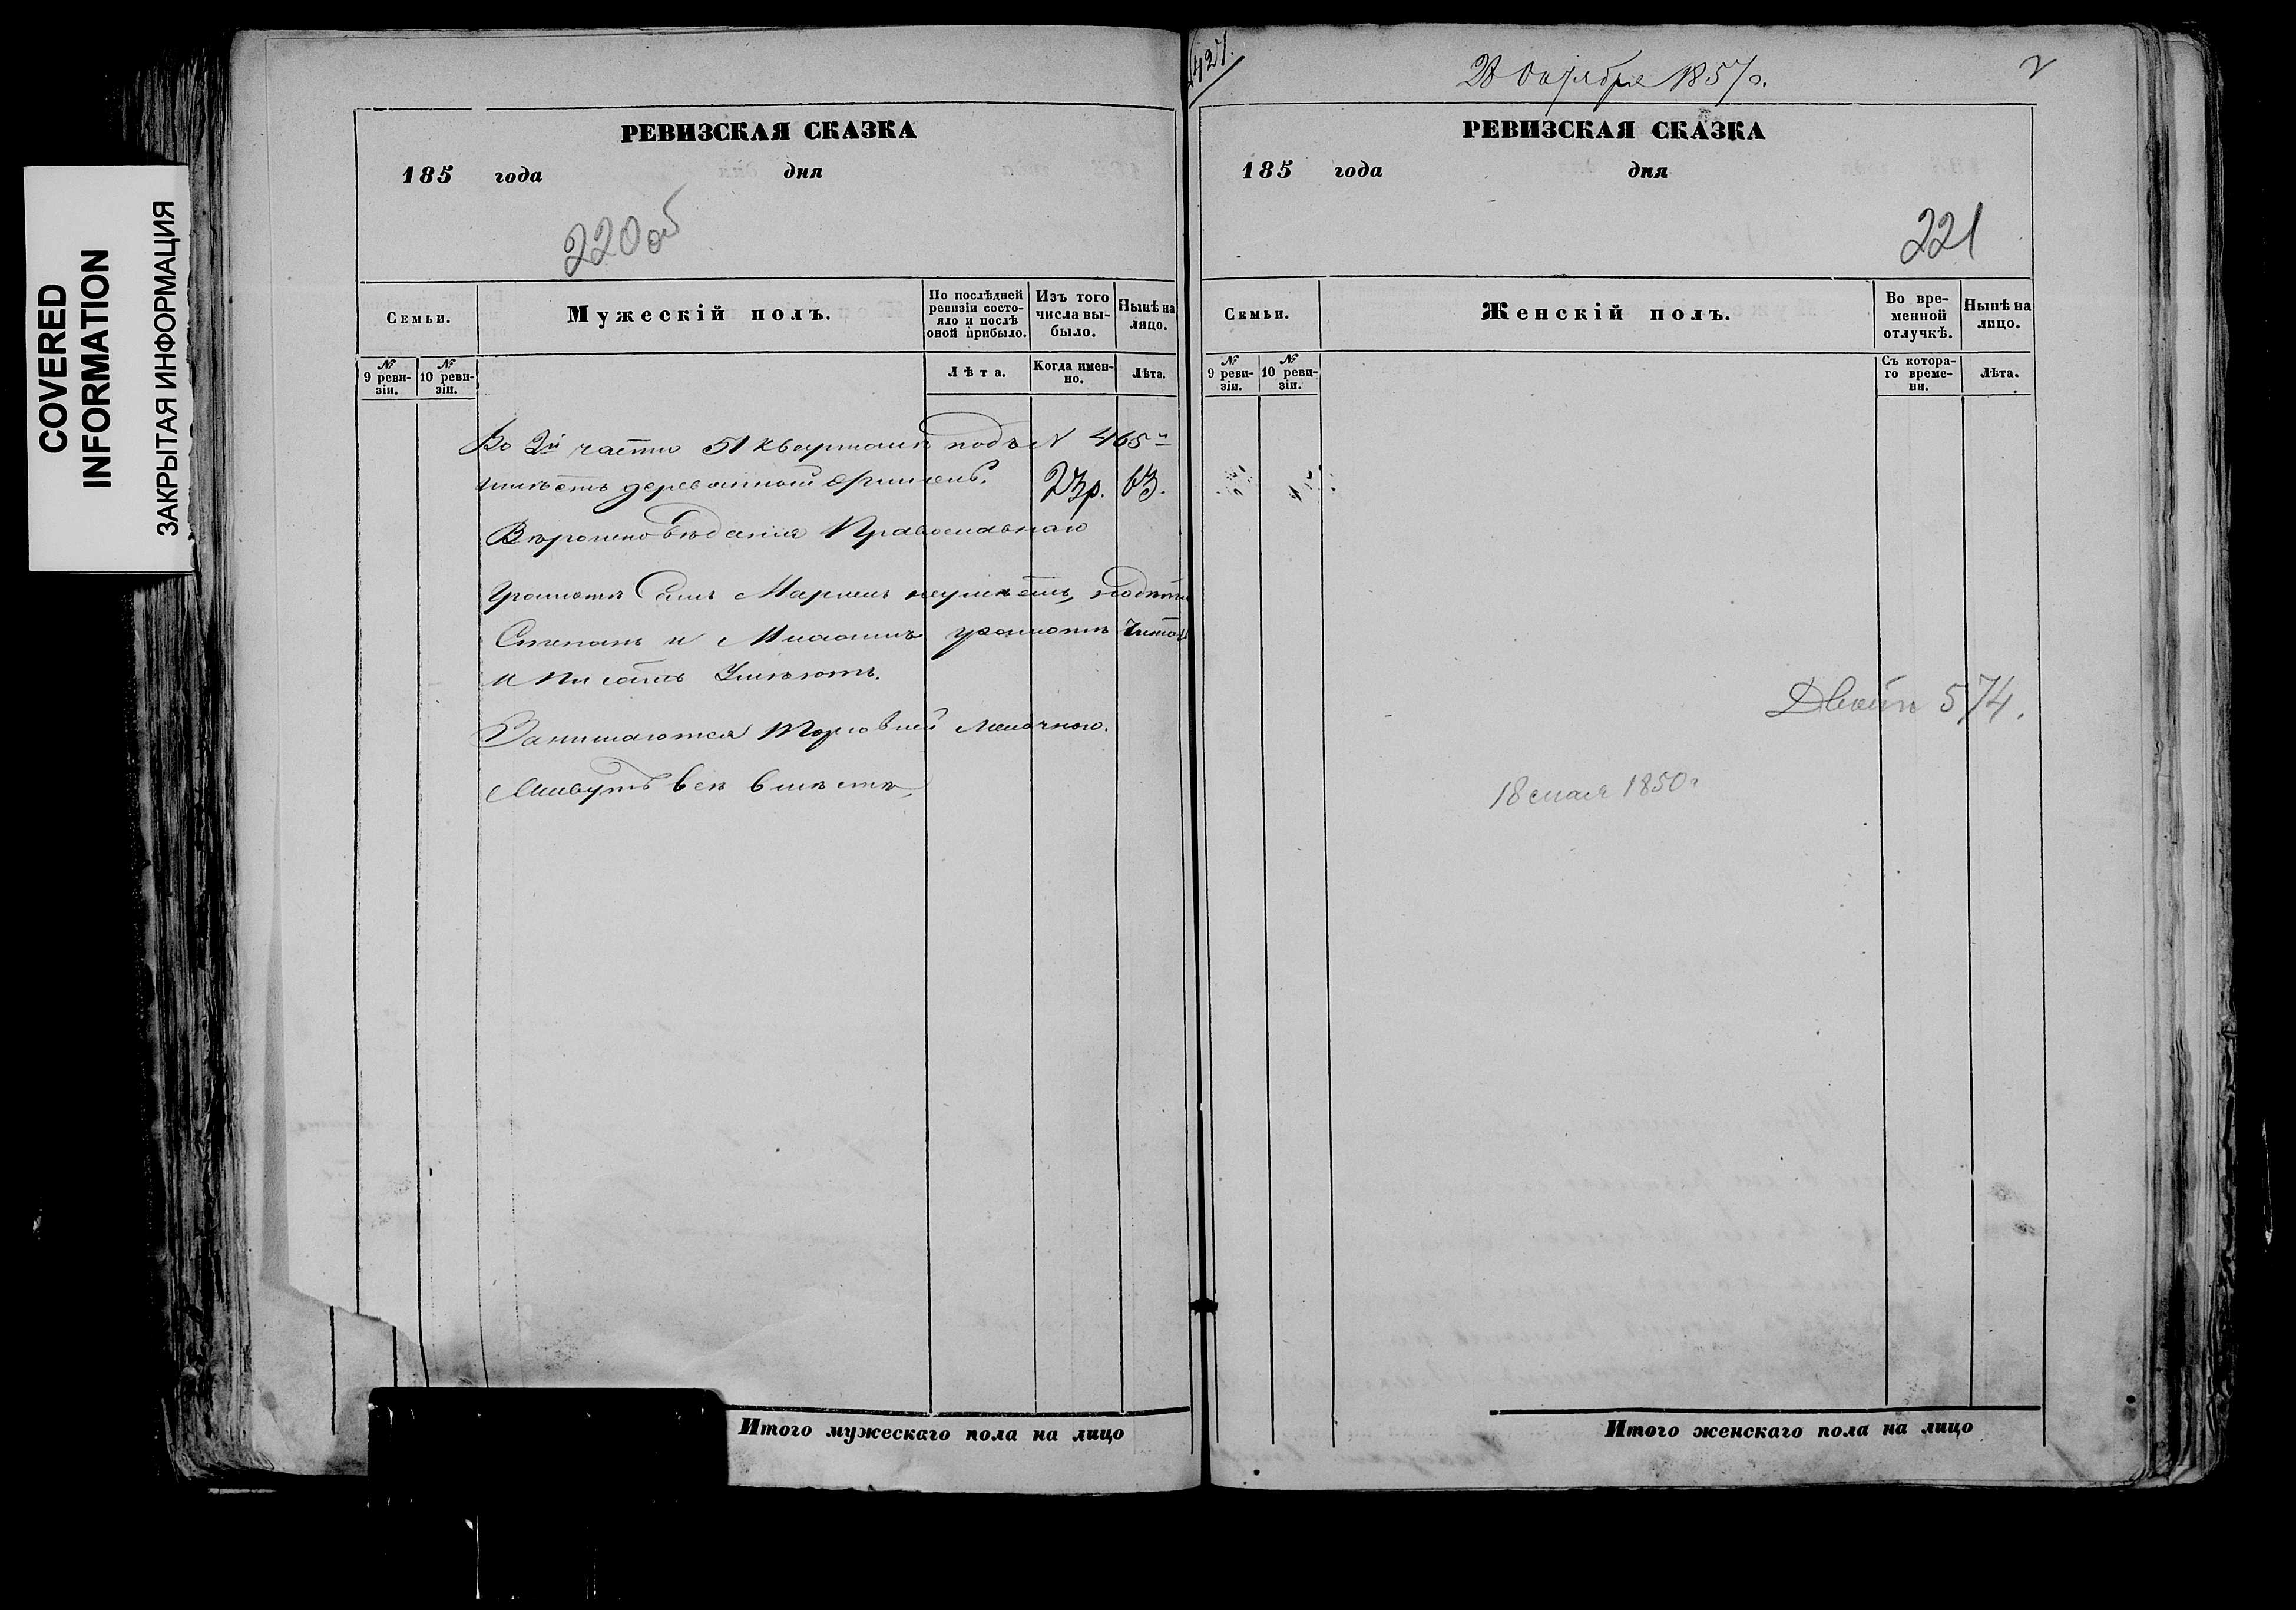 COVERED
INFORMATION
ЗАКРЫТАЯ ИНФОРМАЦИЯ
РЕВИЗСКАЯ СКАЗКА
185 года дня
220 об
Семьи.
Мужескій полъ.
По послѣдней ревизіи состояло и послѣ оной прибыло.
Изъ того числа выбыло.
Нынѣ на лицо.
№ 9 ревизіи.
№ 10 ревизіи.
Лѣта.
Когда именно.
Лѣта.
Во 2й части 51 квартала подъ N 465м
имѣетъ деревянный флигель. 23р. 63.
Вѣроисповѣданія Православнаго
Грамотѣ Самъ не умѣетъ,
Степанъ и грамотѣ читать
и писать Умѣютъ.
Занимаются торговлей мелочною.
Живутъ всѣ вмѣстѣ.
Итого мужескаго пола на лицо
427.
28 Октября 1857 г.
РЕВИЗСКАЯ СКАЗКА
185 года дня
221
Семьи.
Женскій полъ.
Во временной отлучкѣ.
Нынѣ на лицо.
№ 9 ревизіи.
№ 10 ревизіи.
Съ котораго времени.
Лѣта.
574.
18 мая 1850 г
Итого женскаго пола на лицо